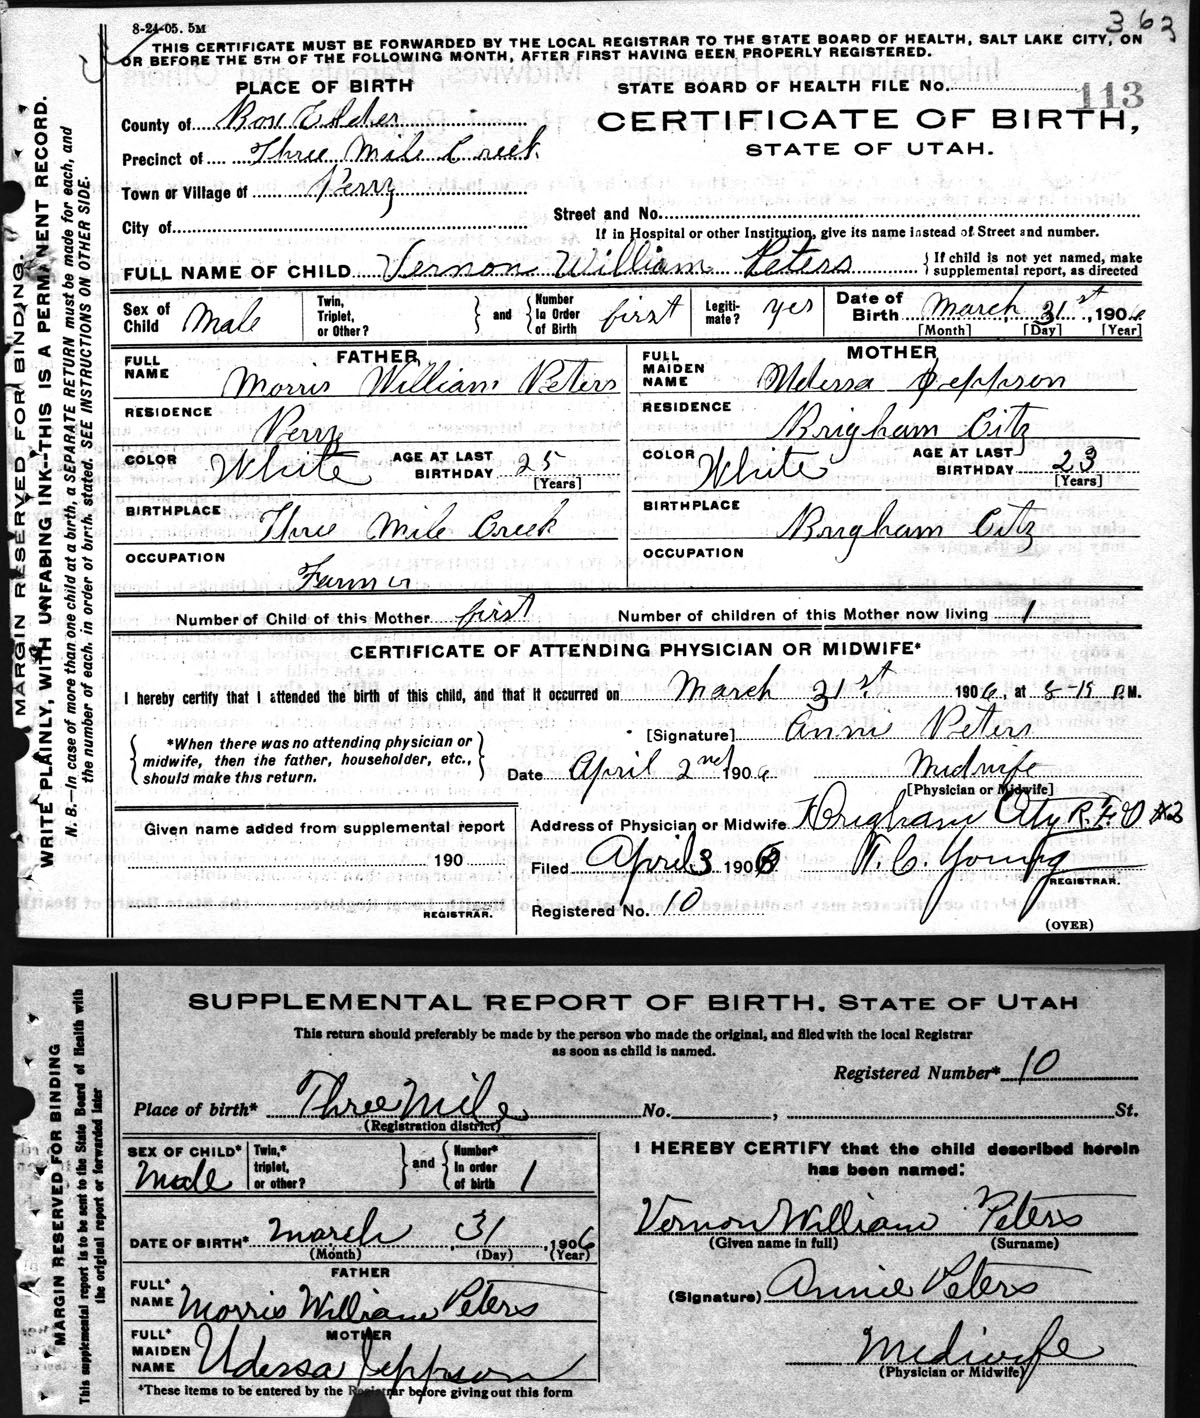 8-24-05. 5M
363
THIS CERTIFICATE MUST BE FORWARDED BY THE LOCAL REGISTRAR TO THE STATE BOARD OF HEALTH, SALT LAKE CITY, ON
OR BEFORE THE 5TH OF THE FOLLOWING MONTH, AFTER FIRST HAVING BEEN PROPERLY REGISTERED.
MARGIN RESERVED FOR BINDING.
WRITE PLAINLY, WITH UNFADING INK--THIS IS A PERMANENT RECORD.
N. B.—In case of more than one child at a birth, a SEPARATE RETURN must be made for each, and
the number of each, in order of birth, stated. SEE INSTRUCTIONS ON OTHER SIDE.
PLACE OF BIRTH
STATE BOARD OF HEALTH FILE No. 113
County of Box Elder
CERTIFICATE OF BIRTH,
Precinct of Three Mile Creek
STATE OF UTAH.
Town or Village of Perry
Street and No.
City of
If in Hospital or other Institution, give its name instead of Street and number.
FULL NAME OF CHILD Vernon William Peters } If child is not yet named, make
supplemental report, as directed
Sex of Child Male Twin, Triplet, or Other? } and { Number In Order of Birth first Legiti-mate? yes Date of Birth March 31st, 1906
[Month] [Day] [Year]
FATHER MOTHER
FULL NAME Morris William Peters FULL MAIDEN NAME Udessa Jeppson
RESIDENCE Perry RESIDENCE Brigham City
COLOR White AGE AT LAST BIRTHDAY 25 [Years] COLOR White AGE AT LAST BIRTHDAY 23 [Years]
BIRTHPLACE Three Mile Creek BIRTHPLACE Brigham City
OCCUPATION Farmer OCCUPATION
Number of Child of this Mother first Number of children of this Mother now living 1
CERTIFICATE OF ATTENDING PHYSICIAN OR MIDWIFE*
I hereby certify that I attended the birth of this child, and that it occurred on March 31st 1906, at 8-15 P.M.
{ *When there was no attending physician or
midwife, then the father, householder, etc.,
should make this return. }
[Signature] Annie Peters
Date April 2nd 1906 Midwife
[Physician or Midwife]
Given name added from supplemental report
190
REGISTRAR.
Address of Physician or Midwife Brigham City R.F.D #2
Filed April 3 1906 W. C. Young
REGISTRAR.
Registered No. 10
(OVER)
MARGIN RESERVED FOR BINDING
This supplemental report is to be sent to the State Board of Health with
the original report or forwarded later
SUPPLEMENTAL REPORT OF BIRTH, STATE OF UTAH
This return should preferably be made by the person who made the original, and filed with the local Registrar
as soon as child is named.
Registered Number* 10
Place of birth* Three Mile No. , St.
(Registration district)
SEX OF CHILD* Male Twin,* triplet, or other? } and { Number* in order of birth 1
DATE OF BIRTH* March 31, 1906
(Month) (Day) (Year)
FATHER
FULL* NAME Morris William Peters
MOTHER
FULL* MAIDEN NAME Udessa Jeppson
*These items to be entered by the Registrar before giving out this form
I HEREBY CERTIFY that the child described herein
has been named:
Vernon William Peters
(Given name in full) (Surname)
(Signature) Annie Peters
Midwife
(Physician or Midwife)